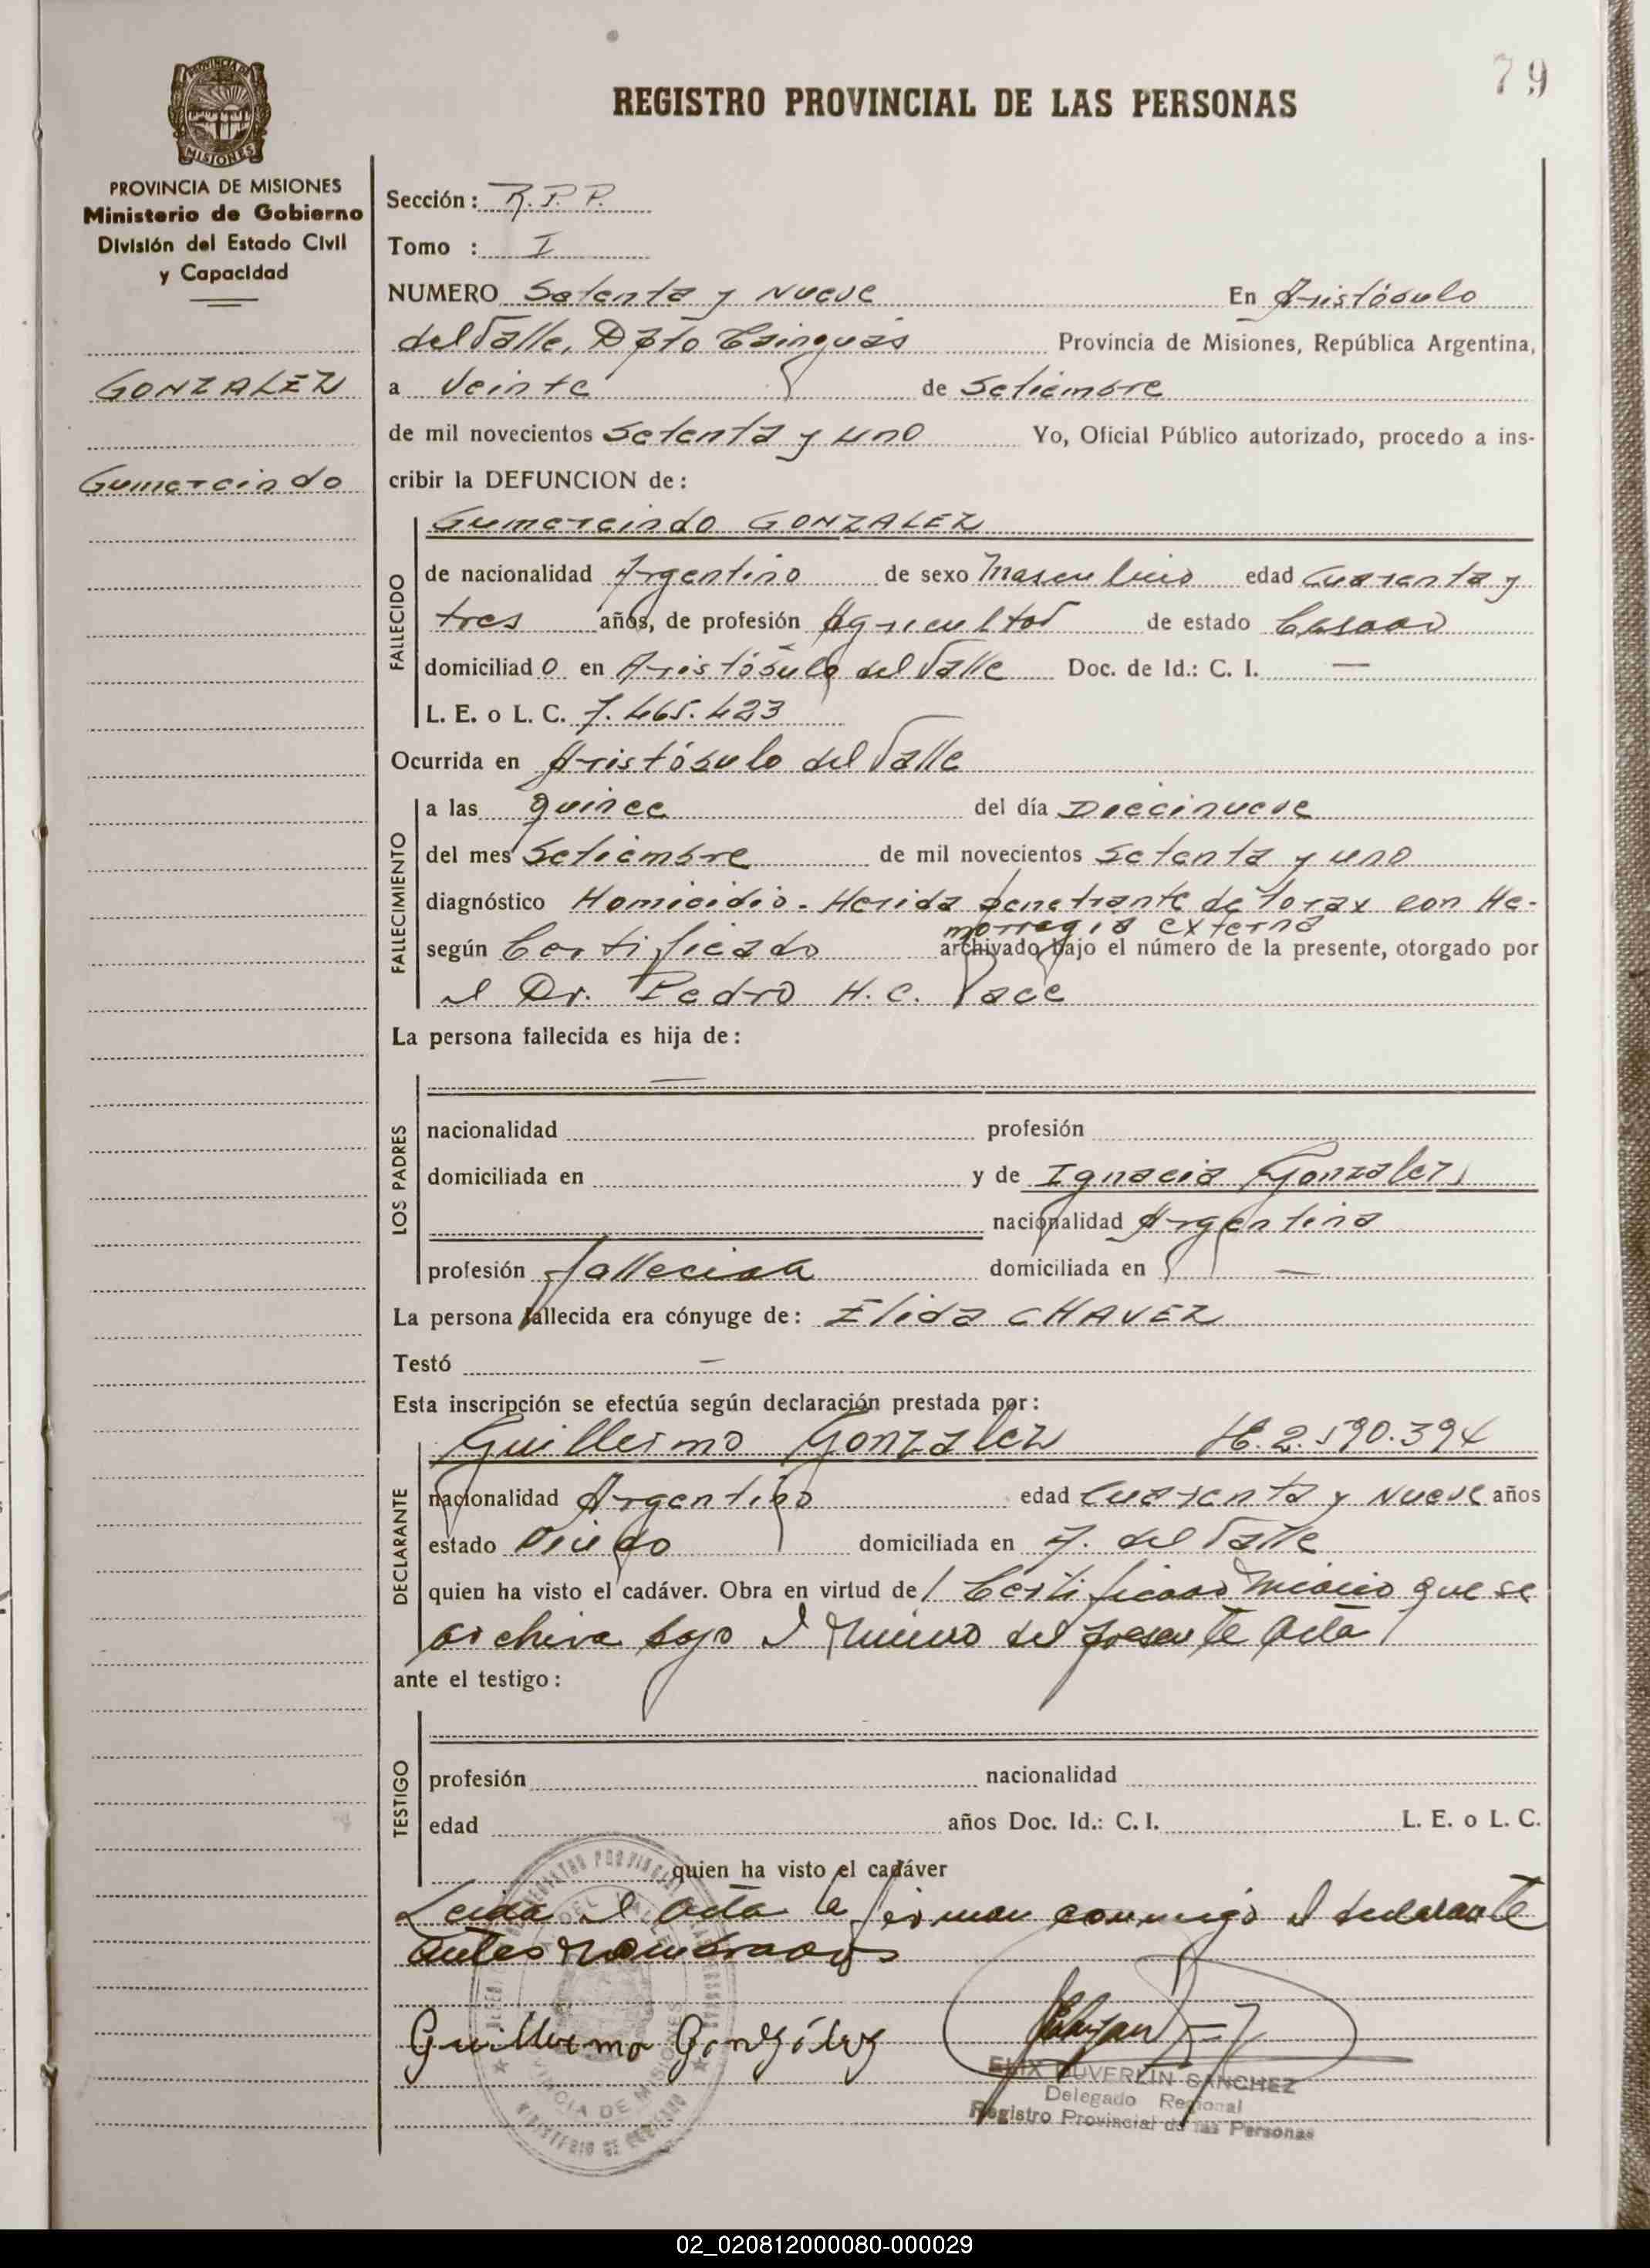 79
REGISTRO PROVINCIAL DE LAS PERSONAS
PROVINCIA DE MISIONES
MISIONES
PROVINCIA DE MISIONES
Ministerio de Gobierno
División del Estado Civil
y Capacidad
GONZALEZ
Gumercindo
Sección: R.P.P.
Tomo : I
NUMERO Setenta y Nueve En Aristóbulo
del Valle, Dpto Cainguás Provincia de Misiones, República Argentina,
a Veinte de Setiembre
de mil novecientos Setenta y uno Yo, Oficial Público autorizado, procedo a ins-
cribir la DEFUNCION de:
FALLECIDO
Gumercindo GONZALEZ
de nacionalidad Argentino de sexo Masculino edad Cuarenta y
tres años, de profesión Agricultor de estado Casado
domiciliado en Aristóbulo del Valle Doc. de Id.: C. I. —
L. E. o L. C. 7.465.423
Ocurrida en Aristóbulo del Valle
FALLECIMIENTO
a las quince del día Diecinueve
del mes Setiembre de mil novecientos Setenta y uno
diagnóstico Homicidio - Herida penetrante de Torax con He-
morragia externa
según Certificado archivado bajo el número de la presente, otorgado por
el Dr. Pedro H. C. Pace
La persona fallecida es hija de:
LOS PADRES
—
nacionalidad profesión
domiciliada en y de Ignacia Gonzalez,
nacionalidad Argentina
profesión fallecida domiciliada en —
La persona fallecida era cónyuge de: Elida CHAVEZ
Testó —
Esta inscripción se efectúa según declaración prestada por:
DECLARANTE
Guillermo Gonzalez 2.590.394
nacionalidad Argentino edad Cuarenta y Nueve años
estado Viudo domiciliada en A. del Valle
quien ha visto el cadáver. Obra en virtud de / Certificado Médico que se
archiva bajo el Número del presente Acta /
ante el testigo:
TESTIGO
profesión nacionalidad
edad años Doc. Id.: C. I. L. E. o L. C.
quien ha visto el cadáver
Leida el Acta la firman conmigo el declarante
antes nombrados
Guillermo González
DUVERLIN SANCHEZ
Delegado Regional
Registro Provincial de las Personas
02_020812000080-000029